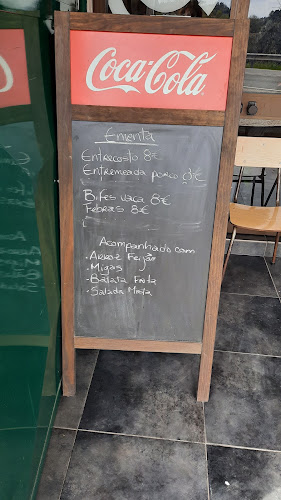 Coca-Cola
Ementa
Entrecosto 8€
Entremeada porco 8€
Bifes vaca 8€
Febras 8€
Acompanhado com
• Arroz Feijão
• Migas
• Batata Frita
• Salada Mista